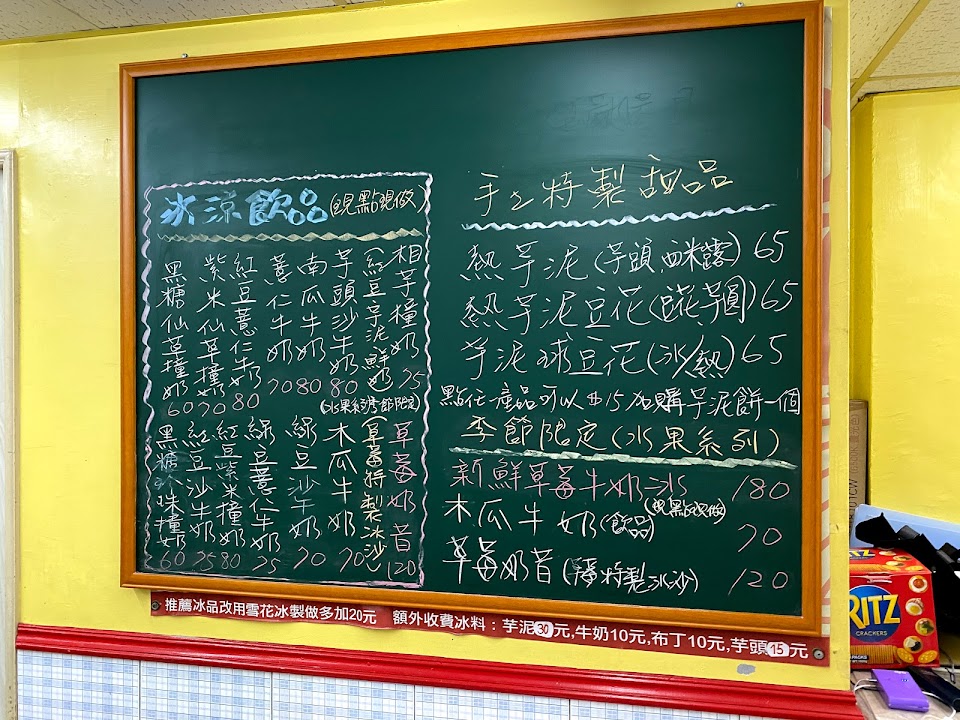 冰涼飲品(現點現做)
相芋撞奶 75
紅豆芋泥鮮奶
芋頭沙牛奶 80
南瓜牛奶 80
薏仁牛奶 70
紅豆薏仁牛奶 80
紫米仙草撞奶 70
黑糖仙草撞奶 60
(水果系列季節限定)
草莓奶昔 120
(草莓特製冰沙)
木瓜牛奶 70
綠豆沙牛奶 70
綠豆薏仁牛奶 75
紅豆紫米撞奶 80
紅豆沙牛奶 75
黑糖珍珠撞奶 60
手工特製甜品
熱芋泥(芋頭,西米露) 65
熱芋泥豆花(豆花芋圓) 65
芋泥球豆花(冰/熱) 65
點任一產品可以$15加購芋泥餅一個
季節限定(水果系列)
新鮮草莓牛奶冰 180
木瓜牛奶(飲品)(現點現做) 70
草莓奶昔(特製冰沙) 120
推薦冰品改用雪花冰製做多加20元 額外收費冰料:芋泥30元,牛奶10元,布丁10元,芋頭15元
RITZ
CRACKERS